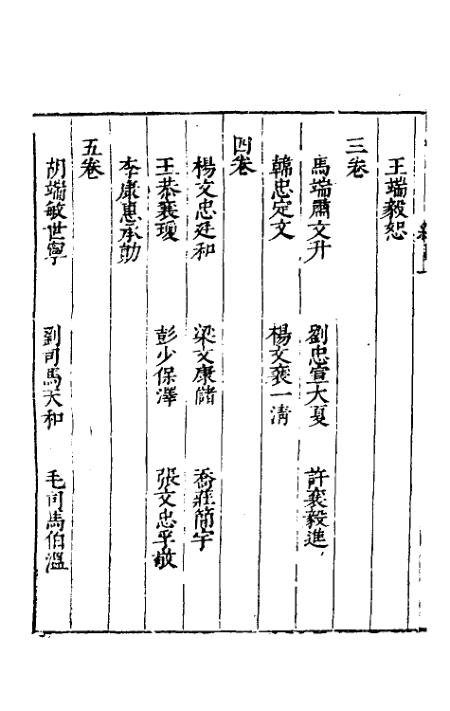 王端毅恕
三卷
馬端肅文升 劉忠宣大夏 許襄毅進
韓忠定文 楊文襄一清
四卷
楊文忠廷和 梁文康儲 喬莊簡宇
王恭襄瓊 彭少保澤 張文忠孚敬
李康惠承勛
五卷
胡端敏世寧 劉司馬天和 毛司馬伯溫